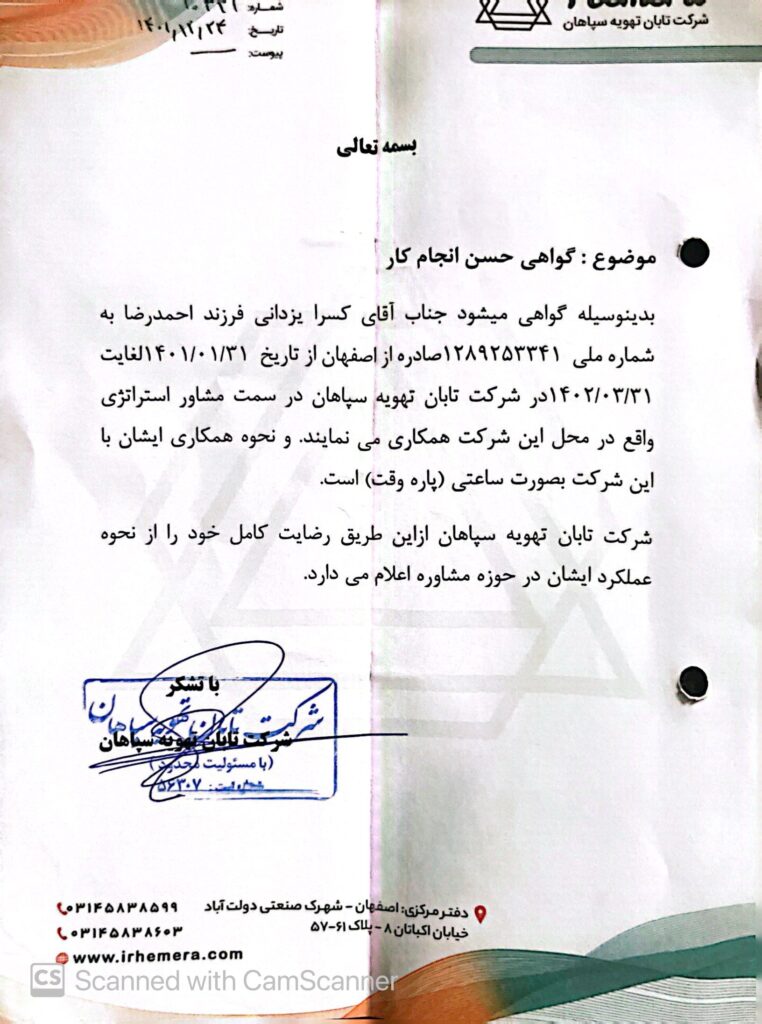 شماره:
تاریخ: ۱۴۰۱/۱۲/۲۴
پیوست:
شرکت تابان تهویه سپاهان
بسمه تعالی
موضوع : گواهی حسن انجام کار
بدینوسیله گواهی میشود جناب آقای کسرا یزدانی فرزند احمدرضا به
شماره ملی ۱۲۸۹۲۵۳۳۴۱صادره از اصفهان از تاریخ ۱۴۰۱/۰۱/۳۱لغایت
۱۴۰۲/۰۳/۳۱در شرکت تابان تهویه سپاهان در سمت مشاور استراتژی
واقع در محل این شرکت همکاری می نمایند. و نحوه همکاری ایشان با
این شرکت بصورت ساعتی (پاره وقت) است.
شرکت تابان تهویه سپاهان ازاین طریق رضایت کامل خود را از نحوه
عملکرد ایشان در حوزه مشاوره اعلام می دارد.
با تشکر
شرکت تابان تهویه سپاهان
شرکت تابان تهویه سپاهان
(با مسئولیت محدود)
شماره ثبت: ۵۶۳۰۷
دفتر مرکزی: اصفهان - شهرک صنعتی دولت آباد
خیابان اکباتان ۸ - پلاک ۶۱-۵۷
۰۳۱۴۵۸۳۸۵۹۹
۰۳۱۴۵۸۳۸۶۰۳
www.irhemera.com
CS Scanned with CamScanner